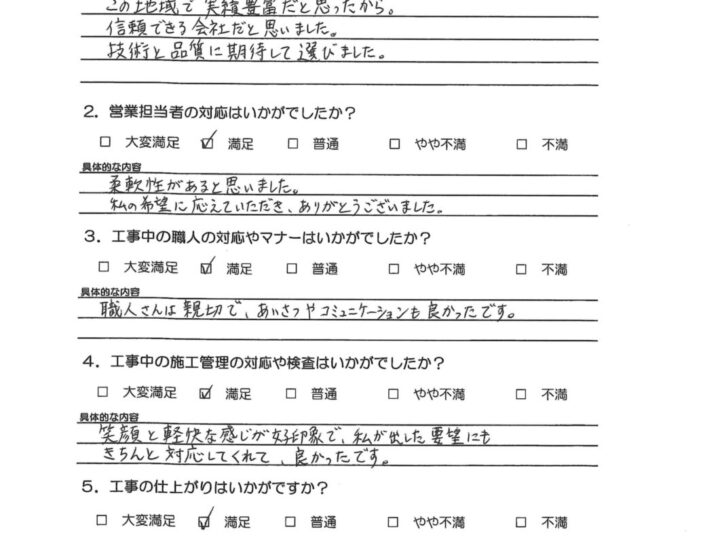 この地域で実績豊富だと思ったから。
信頼できる会社だと思いました。
技術と品質に期待して選びました。
2．営業担当者の対応はいかがでしたか？
□ 大変満足 ☑ 満足 □ 普通 □ やや不満 □ 不満
具体的な内容
柔軟性があると思いました。
私の希望に応えていただき、ありがとうございました。
3．工事中の職人の対応やマナーはいかがでしたか？
□ 大変満足 ☑ 満足 □ 普通 □ やや不満 □ 不満
具体的な内容
職人さんは親切で、あいさつやコミュニケーションも良かったです。
4．工事中の施工管理の対応や検査はいかがでしたか？
□ 大変満足 ☑ 満足 □ 普通 □ やや不満 □ 不満
具体的な内容
笑顔と軽快な感じが好印象で、私が出した要望にも
きちんと対応してくれて、良かったです。
5．工事の仕上がりはいかがですか？
□ 大変満足 ☑ 満足 □ 普通 □ やや不満 □ 不満